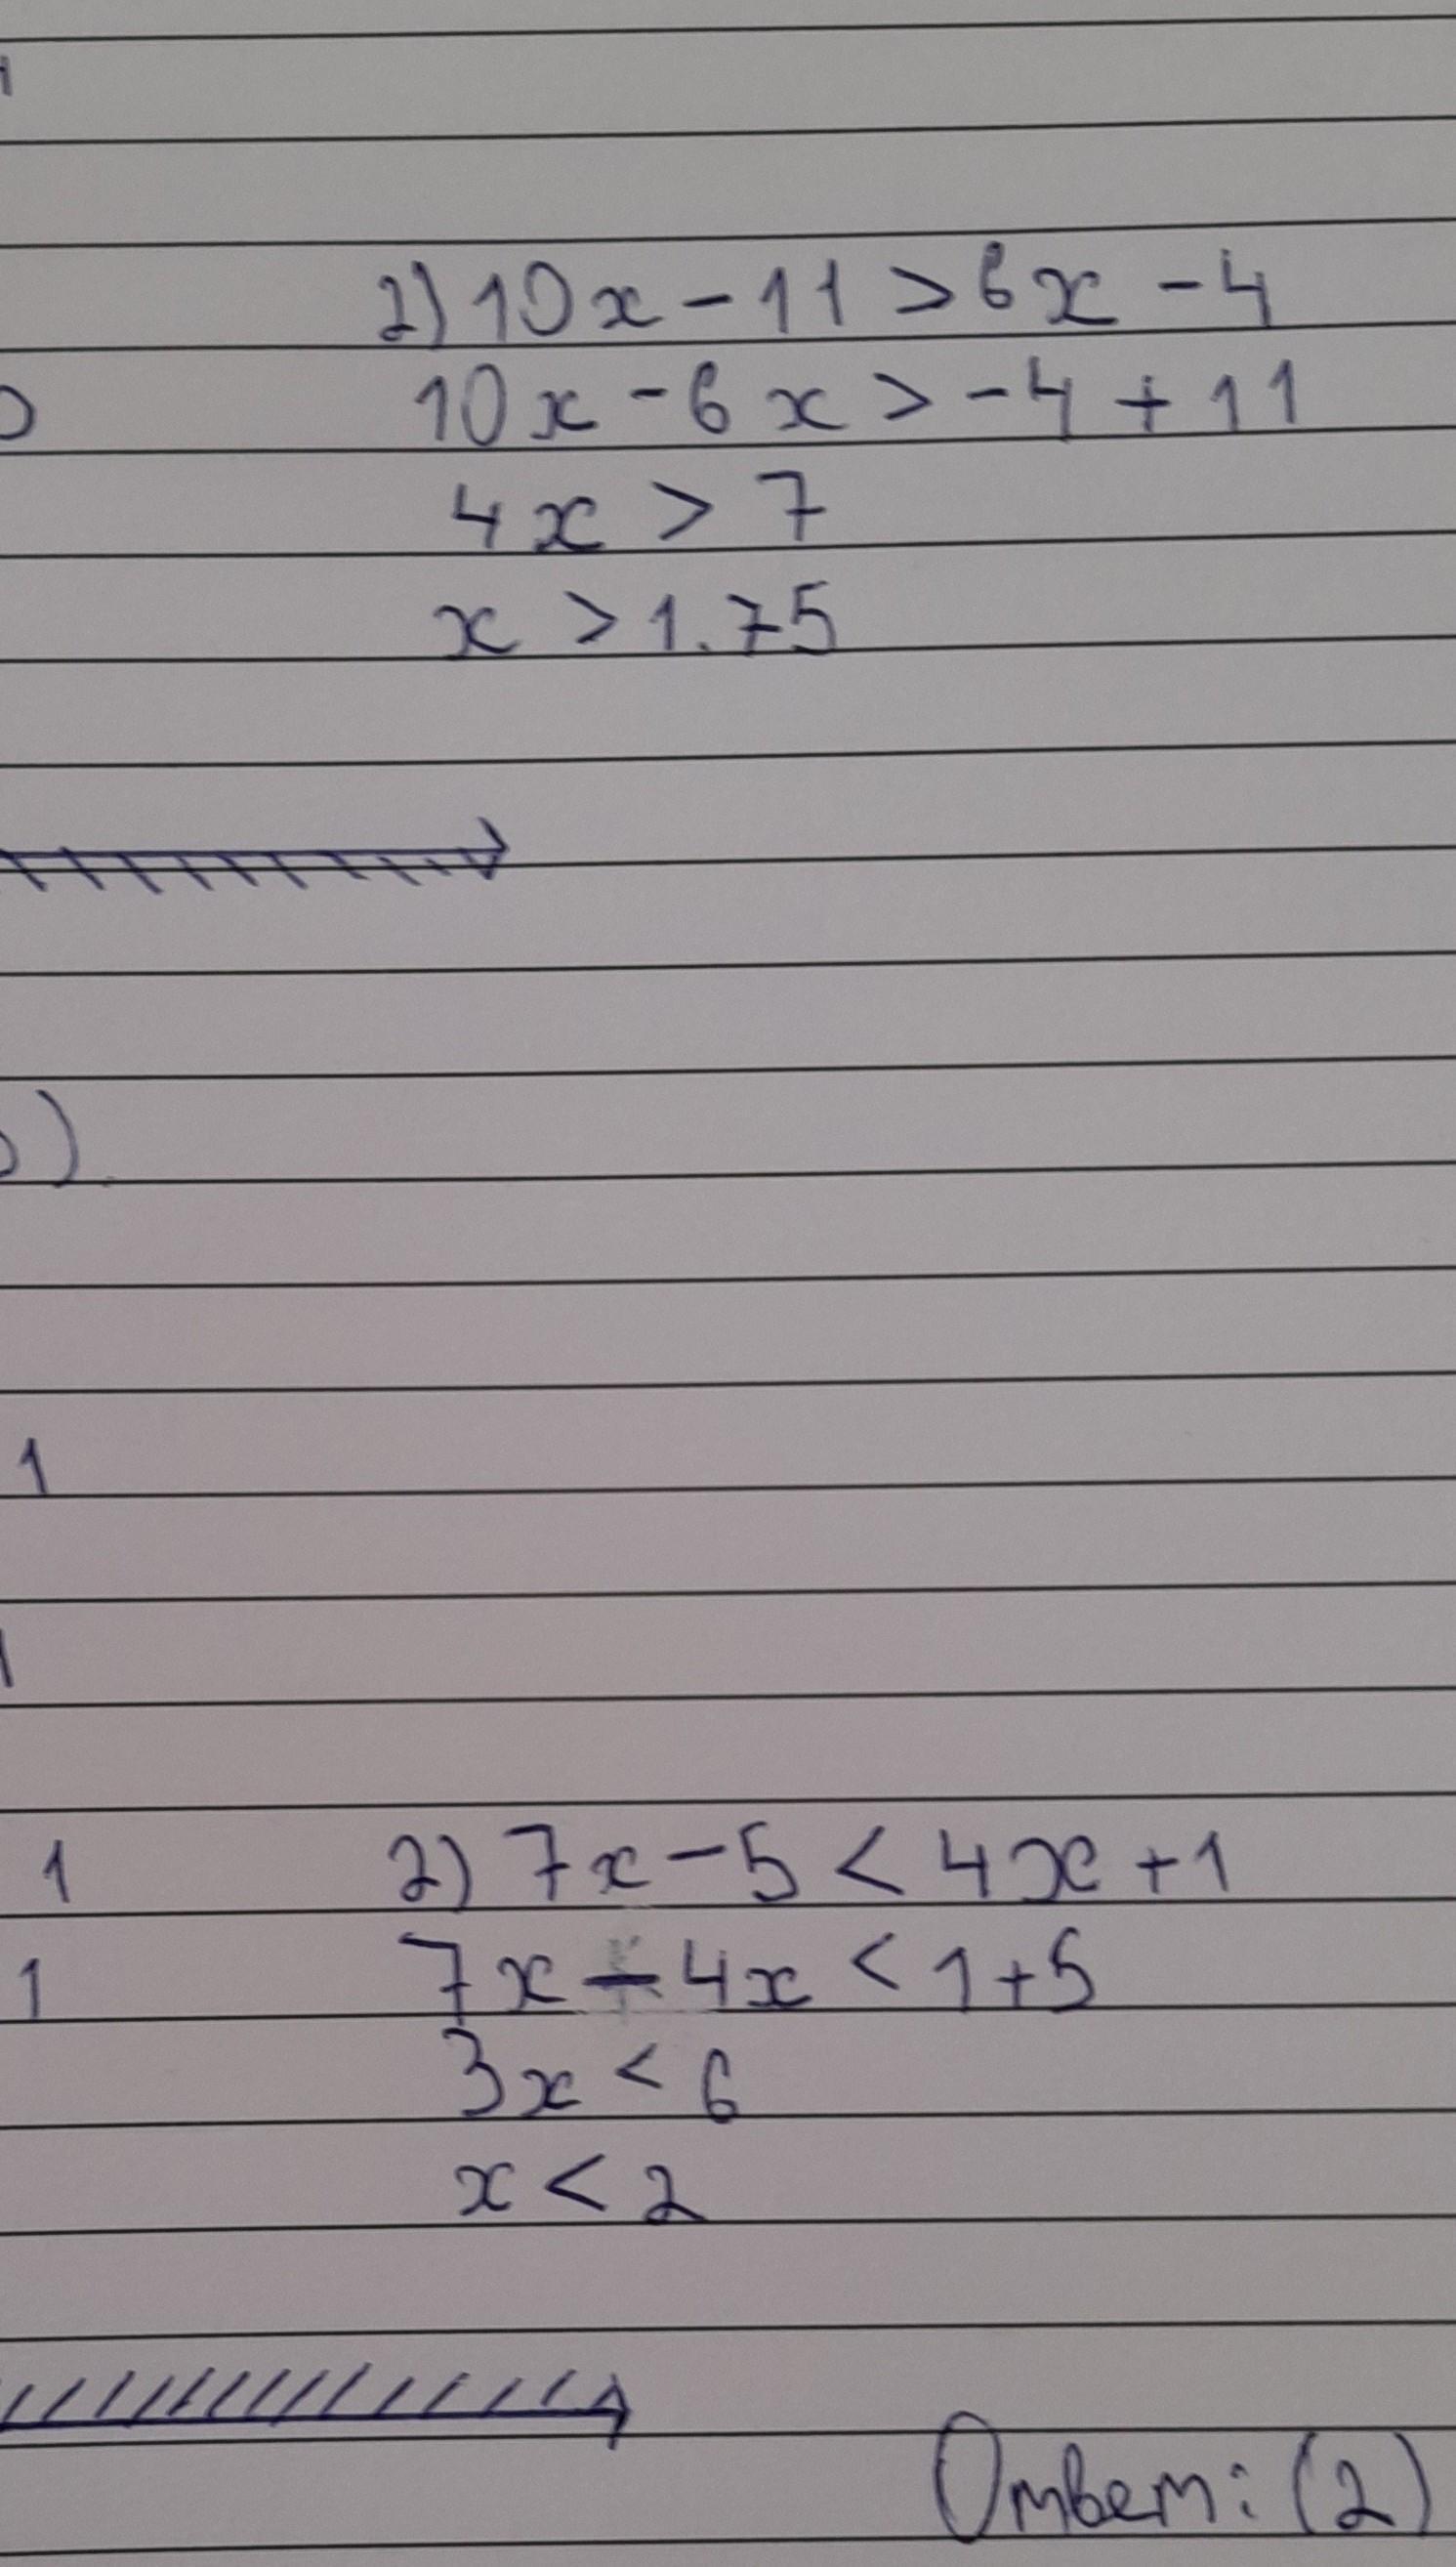 2) 10x - 11 > 6x - 4
10x - 6x > -4 + 11
4x > 7
x > 1.75
)
1
1 2) 7x - 5 < 4x + 1
1 7x - 4x < 1 + 5
3x < 6
x < 2
Ответ: (2)